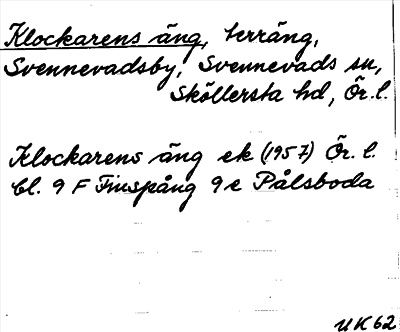 Klockarens äng, terräng,
Svennevadsby, Svennevads sn,
Sköllersta hd, Ör. l.
Klockarens äng ek (1957) Ör. l.
bl. 9 F Finspång 9 e Pålsboda
UK 62